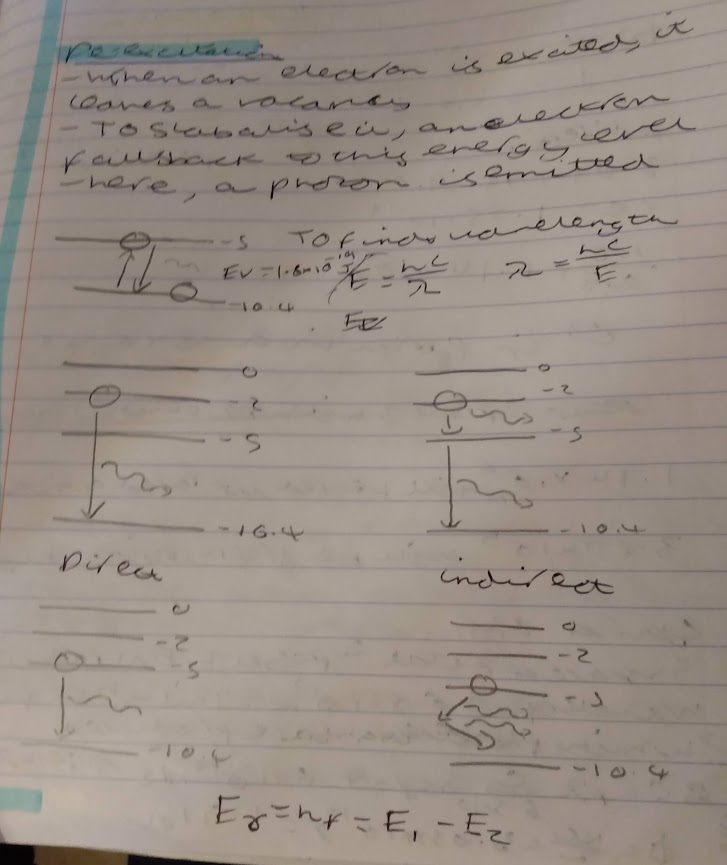 Deexcitation
- When an electron is excited, it
leaves a vacancy
- To Stabalise it, an electron
falls back to this energy level
- here, a photon is emitted
-5 To find wavelength
eV = 1.6×10⁻¹⁹ J E = hc/λ λ = hc/E
-10.4
0 0
-2 -2
-5 -5
-10.4 -10.4
Direct indirect
0 0
-2 -2
-5 -5
-10.4 -10.4
Eγ = hf = E₁ - E₂